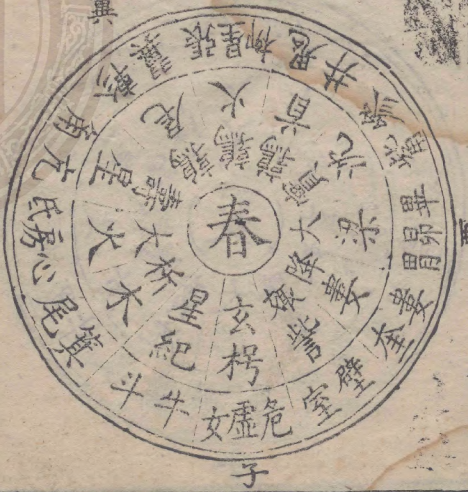 春
玄枵
星紀
析木
大火
壽星
鶉尾
鶉火
鶉首
實沈
大梁
降婁
娵訾
角亢
氐房心
尾箕
斗牛
女虛危
室壁
奎婁
胃昴畢
觜參
井鬼
柳星張
翼軫
子
巽